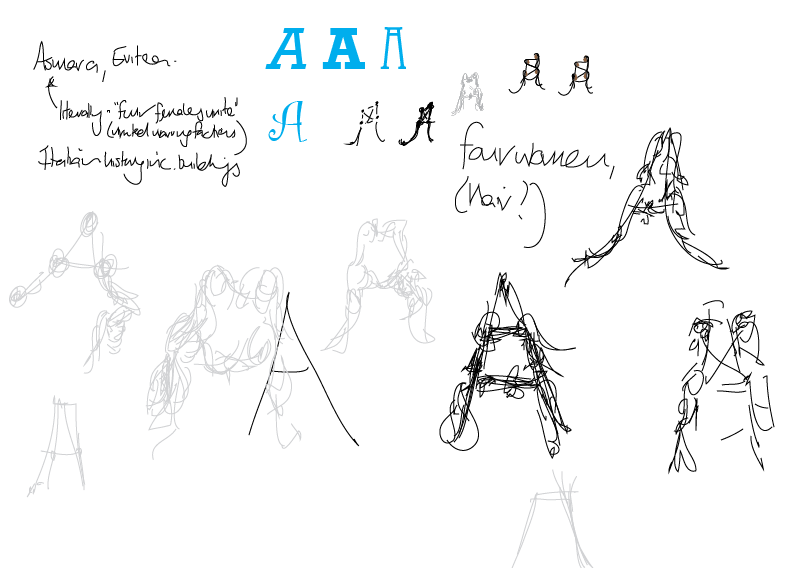 A A A
Asmara, Eritrea.
literally: "four females unite"
(united warring factions)
A
Italian history inc. buildings
four women,
(Hair?)
A